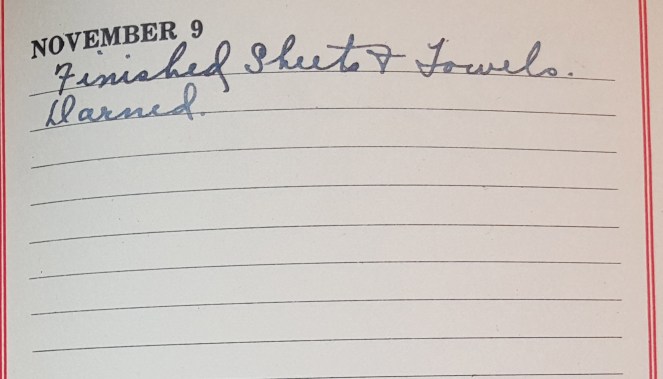 NOVEMBER 9
Finished Sheets & Towels.
Darned.